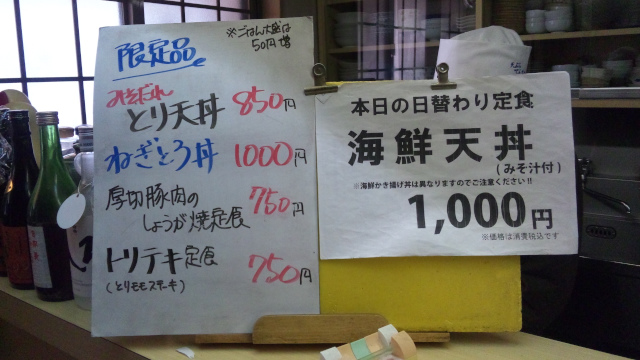 限定品
※ごはん大盛は
50円増
みそだれ
とり天丼 850円
ねぎとろ丼 1000円
厚切豚肉の
しょうが焼定食 750円
トリテキ定食 750円
(とりモモステーキ)
本日の日替わり定食
海鮮天丼
(みそ汁付)
※海鮮かき揚げ丼は異なりますのでご注意ください!!
1,000円
※価格は消費税込です